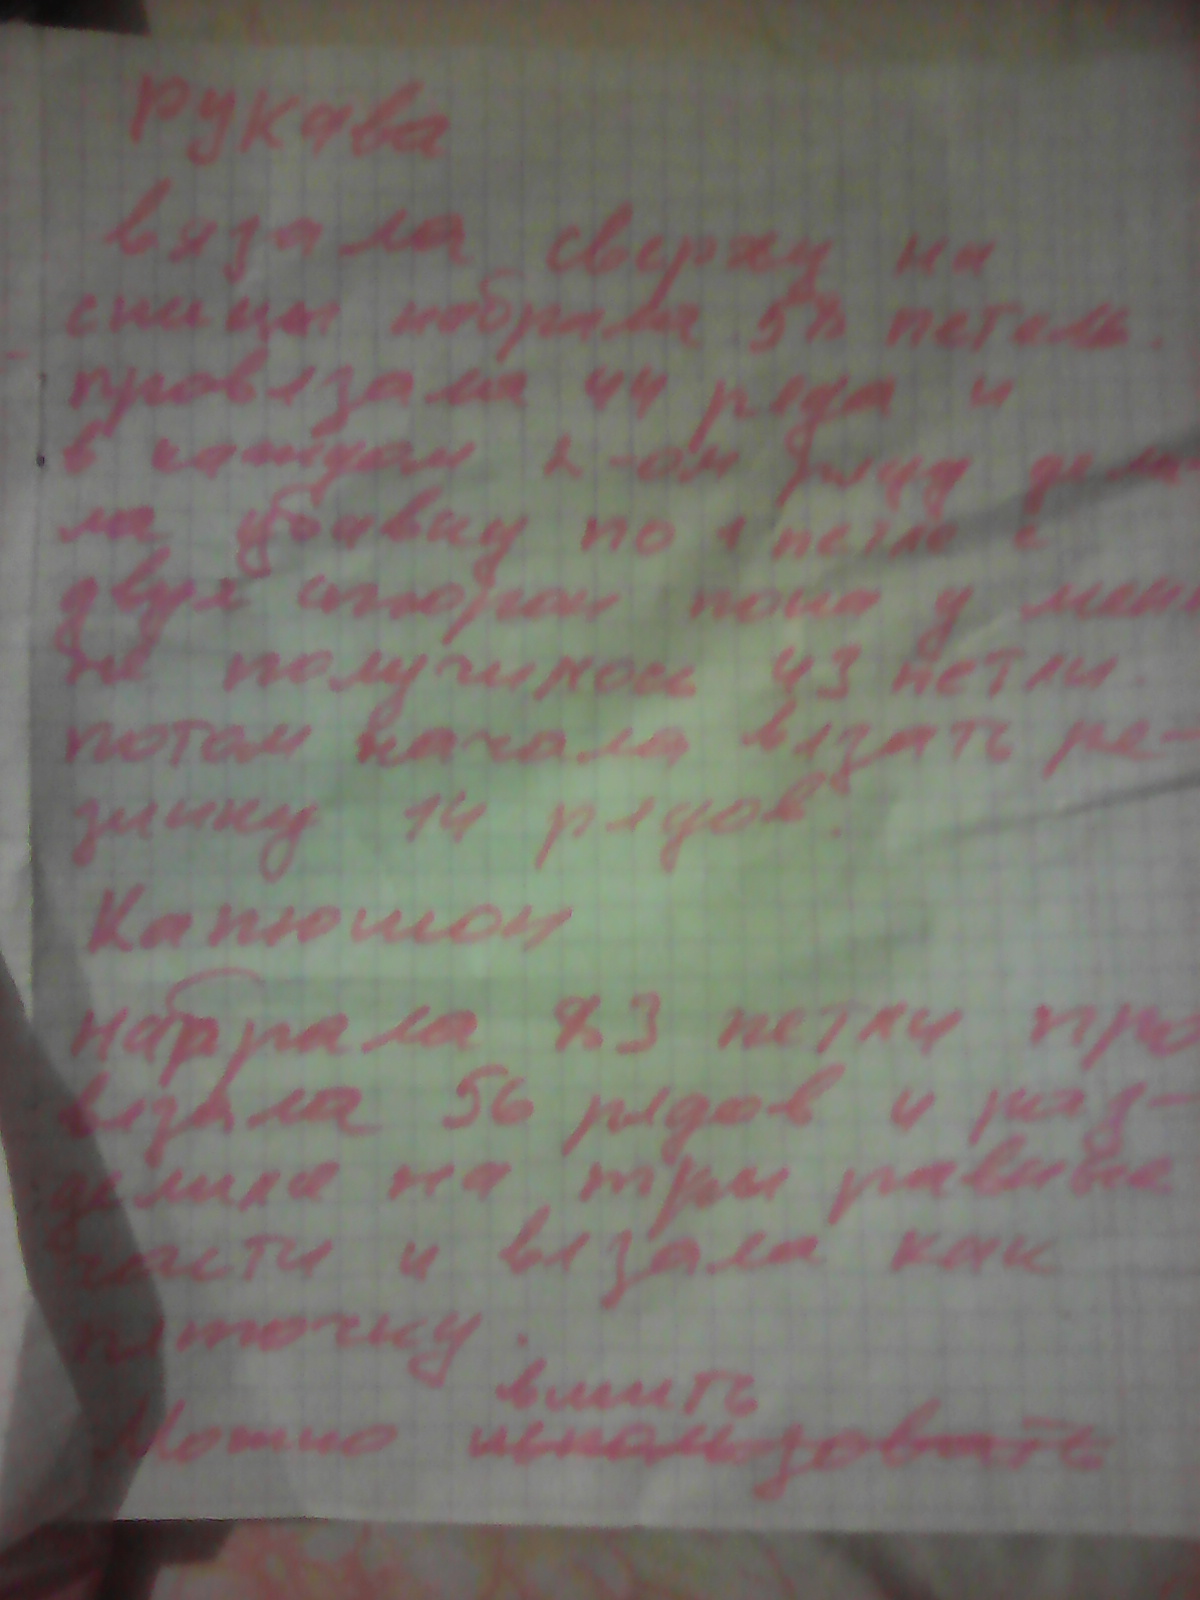 Рукава
вязала сверху на
спицы набрала 58 петель.
провязала 44 ряда и
в каждом 2-ом ряду дела-
ла убавку по 1 петле с
двух сторон пока у меня
не получилось 43 петли.
потом начала вязать ре-
зинку 14 рядов.
Капюшон
набрала 83 петли про
вязала 56 рядов и раз-
делила на три равные
части и вязала как
пяточку.
вшить
Можно использовать